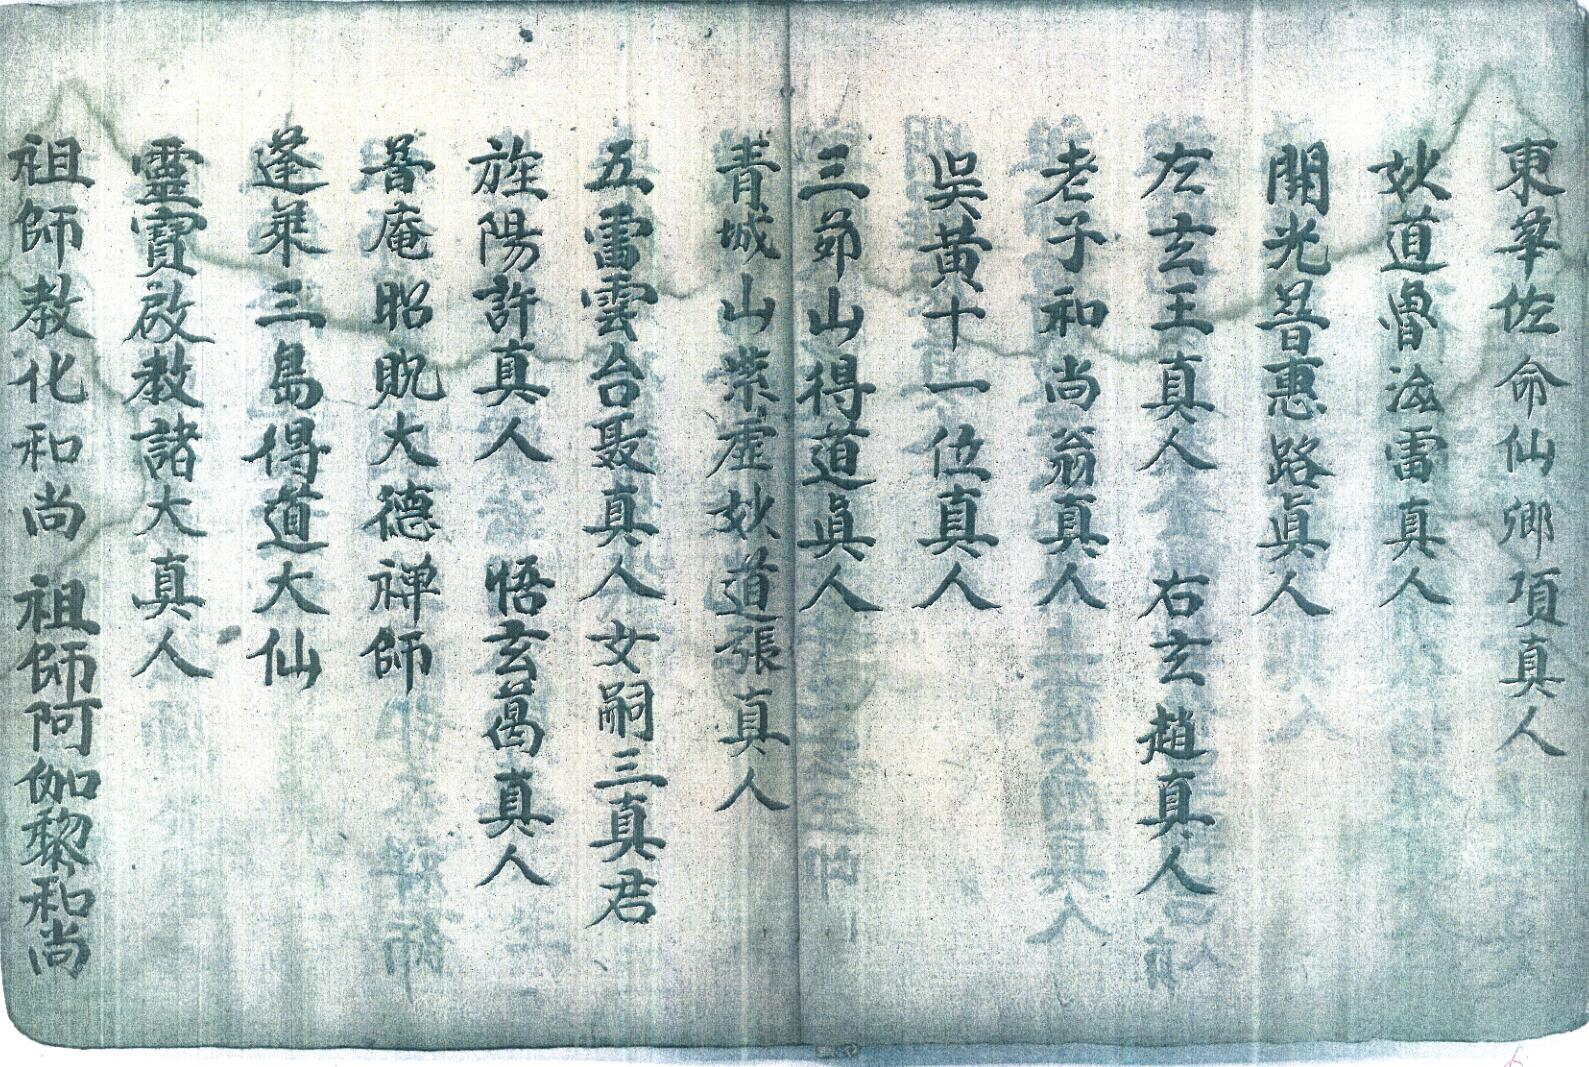 東華佐命仙卿項真人
妙道魯法雷真人
開光普惠路眞人
左玄王真人 右玄趙真人
老子和尚翁真人
吳黃十一位真人
三茆山得道眞人
青城山紫虛妙道張真人
五雷雲台聂真人女嗣三真君
旌陽許真人 悟玄葛真人
普庵昭貺大德禅師
逢莱三島得道大仙
靈寶啟教諸大真人
祖師教化和尚 祖師阿伽黎和尚